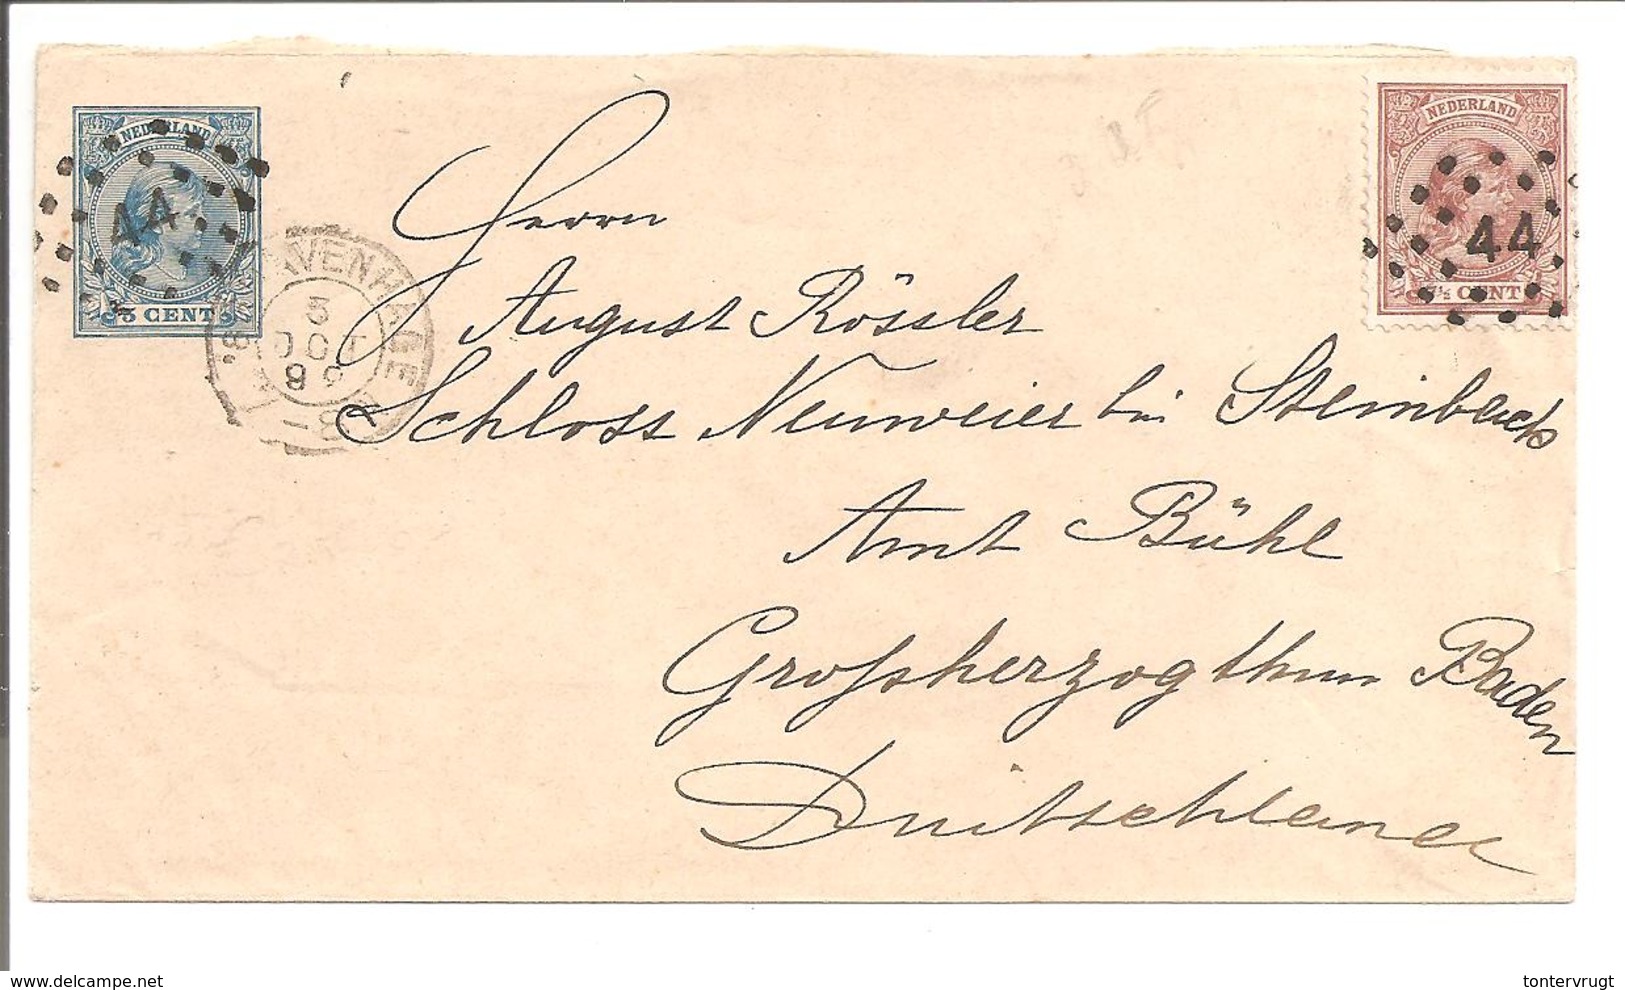 NEDERLAND
44
5 CENT
NEDERLAND
44
7½ CENT
3
OCT
Herrn
August Rössler
Schloss Neuweier bei Steinbach
Amt Bühl
Großherzogthum Baden
Duitschland
tontervrugt